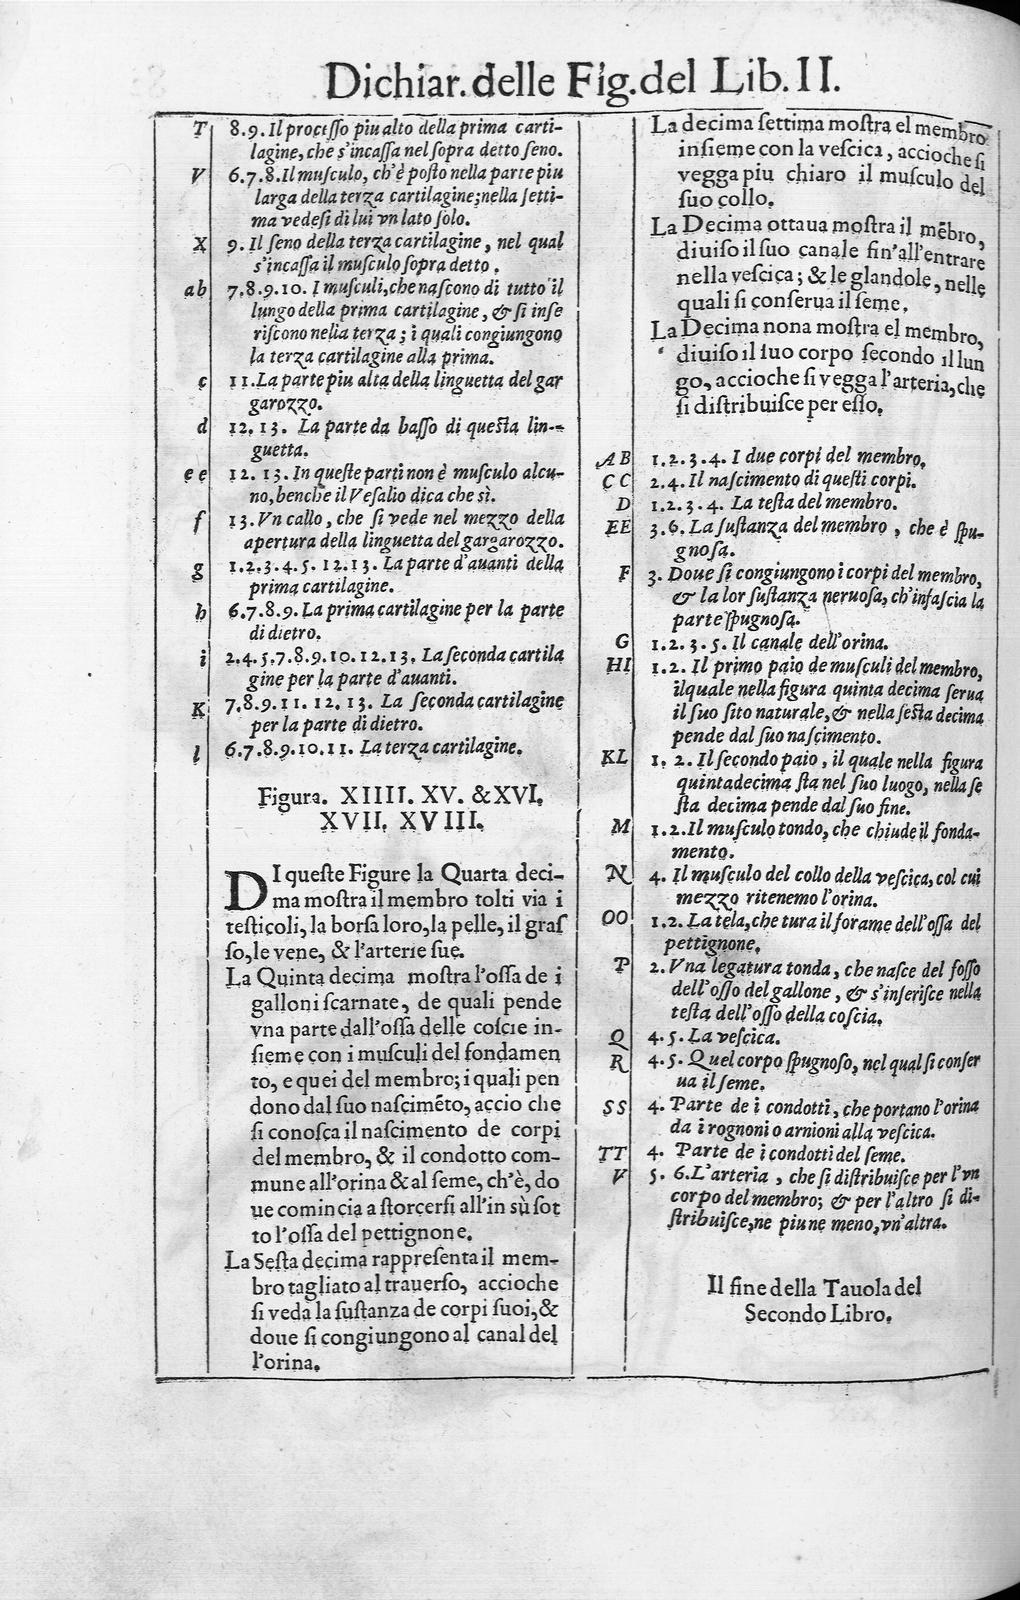 Dichiar. delle Fig. del Lib. II.
T 8.9. Il processo piu alto della prima carti-
lagine, che s'incassa nel sopra detto seno.
V 6.7.8. Il musculo, ch'è posto nella parte piu
larga della terza cartilagine; nella setti-
ma vedesi di lui vn lato solo.
X 9. Il seno della terza cartilagine, nel qual
s'incassa il musculo sopra detto.
ab 7.8.9.10. I musculi, che nascono di tutto il
lungo della prima cartilagine, & si inse
riscono nella terza; i quali congiungono
la terza cartilagine alla prima.
c 11. La parte piu alta della linguetta del gar
garozzo.
d 12.13. La parte da basso di questa lin-
guetta.
ee 12.13. In queste parti non è musculo alcu-
no, benche il Vesalio dica che sì.
f 13. Vn callo, che si vede nel mezzo della
apertura della linguetta del gargarozzo.
g 1.2.3.4.5.12.13. La parte d'auanti della
prima cartilagine.
h 6.7.8.9. La prima cartilagine per la parte
di dietro.
i 2.4.5.7.8.9.10.12.13. La seconda cartila
gine per la parte d'auanti.
K 7.8.9.11.12.13. La seconda cartilagine
per la parte di dietro.
l 6.7.8.9.10.11. La terza cartilagine.
Figura. XIIII. XV. & XVI.
XVII. XVIII.
DI queste Figure la Quarta deci-
ma mostra il membro tolti via i
testicoli, la borsa loro, la pelle, il gras
so, le vene, & l'arterie sue.
La Quinta decima mostra l'ossa de i
galloni scarnate, de quali pende
vna parte dall'ossa delle coscie in-
sieme con i musculi del fondamen
to, e quei del membro; i quali pen
dono dal suo nascimēto, accio che
si conosca il nascimento de corpi
del membro, & il condotto com-
mune all'orina & al seme, ch'è, do
ue comincia a storcersi all'in sù sot
to l'ossa del pettignone.
La Sesta decima rappresenta il mem-
bro tagliato al trauerso, accioche
si veda la sustanza de corpi suoi, &
doue si congiungono al canal del
l'orina.
La decima settima mostra el membro
insieme con la vescica, accioche si
vegga piu chiaro il musculo del
suo collo.
La Decima ottaua mostra il mēbro,
diuiso il suo canale fin'all'entrare
nella vescica; & le glandole, nelle
quali si conserua il seme.
La Decima nona mostra el membro,
diuiso il suo corpo secondo il lun
go, accioche si vegga l'arteria, che
si distribuisce per esso.
AB 1.2.3.4. I due corpi del membro.
CC 2.4. Il nascimento di questi corpi.
D 1.2.3.4. La testa del membro.
EE 3.6. La sustanza del membro, che è spu-
gnosa.
F 3. Doue si congiungono i corpi del membro,
& la lor sustanza neruosa, ch'infascia la
parte spugnosa.
G 1.2.3.5. Il canale dell'orina.
HI 1.2. Il primo paio de musculi del membro,
ilquale nella figura quinta decima serua
il suo sito naturale, & nella sesta decima
pende dal suo nascimento.
KL 1.2. Il secondo paio, il quale nella figura
quintadecima sta nel suo luogo, nella se
sta decima pende dal suo fine.
M 1.2. Il musculo tondo, che chiude il fonda-
mento.
N 4. Il musculo del collo della vescica, col cui
mezzo ritenemo l'orina.
OO 1.2. La tela, che tura il forame dell'ossa del
pettignone.
P 2. Vna legatura tonda, che nasce del fosso
dell'osso del gallone, & s'inserisce nella
testa dell'osso della coscia.
Q 4.5. La vescica.
R 4.5. Quel corpo spugnoso, nel qual si conser
ua il seme.
SS 4. Parte de i condotti, che portano l'orina
da i rognoni o arnioni alla vescica.
TT 4. Parte de i condotti del seme.
V 5.6. L'arteria, che si distribuisce per l'vn
corpo del membro; & per l'altro si di-
stribuisce, ne piu ne meno, vn'altra.
Il fine della Tauola del
Secondo Libro.